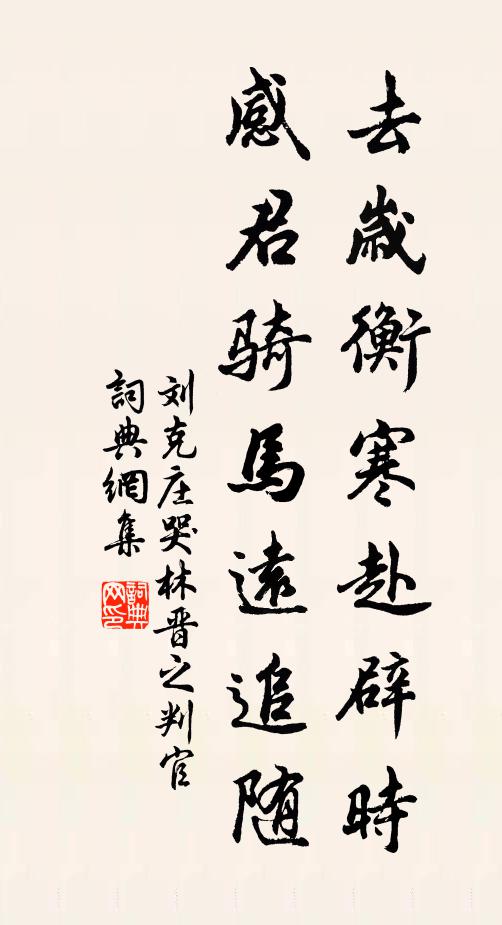 去歲衡寒赴辟時
感君騎馬遠追随
刘克庄哭林晋之判官
詞典網集
詞典网印